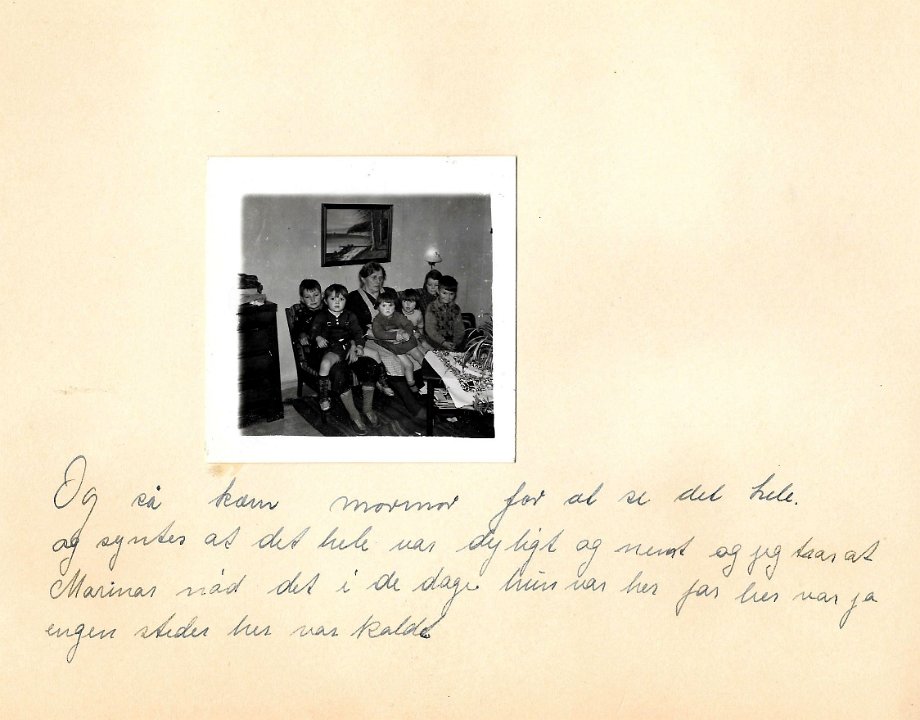 Og så kom mormor for at se det hele.
og syntes at det hele var dejligt og nemt og jeg tror at
Marinar nød det i de dage hun var her for her var jo
engen steder her var koldt